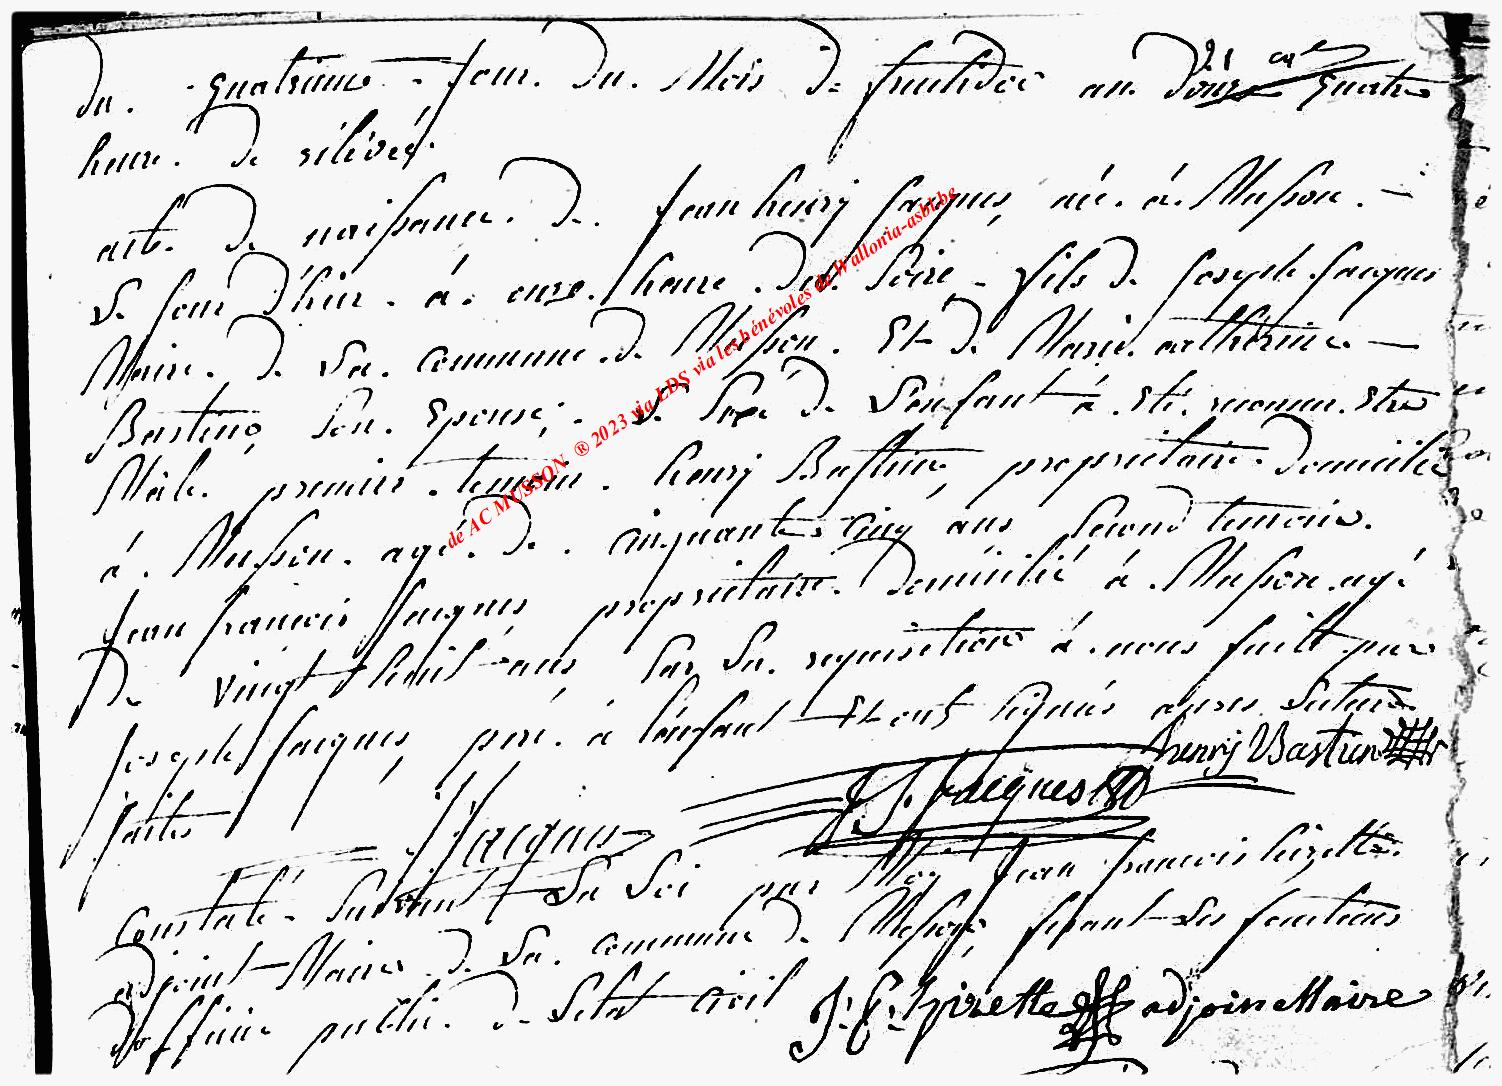 du. quatrieme jour du Mois de fructidor an douze quatre
heure. de rélévée.
acte de naissance. de. Jean henry Jacques, né. à. Musson.
Le Jour d'hier. à. onze. heure. du. Soire, fils de Joseph Jacques
Maire. de La. commune. de Musson. Et de Marie. catherine.
Basting Son. Epouse; Le Sexe de L'enfant à. Eté. reconnu. Etre
Mâle. premier. temoin. henry Bastin, proprietaire. domicilié
à. Musson. agé. de. cinquante, cinq ans Second temoin.
Jean francois Jacques proprietaire. domicilié à. Musson. agé
De vingt huit ans Sur La. requisition à. nous fait par
Joseph Jacques, pere. à l'enfant Et ont signés apres Lecture
faites
henry Bastien
J Jacques
J f Jacques
Constaté Suivant La Loi par Moy Jean francois hizette.
adjoint Maire de La. commune de Musson, fesant Les fonctions
d'officier public de Letat civil
J: f: hizette adjoin Maire
de AC MUSSON ® 2023 via LDS via les bénévoles de Wallonia-asbl.be